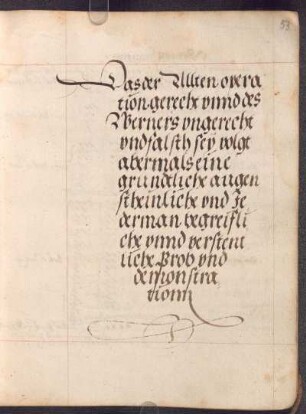 53
Das der Allten opera
tion gerecht vnnd des
Werners vngerecht
vnd falsch sey volgt
abermals eine
gründtliche augen
scheinliche vnd Je
derman begreifli
che vnnd verstent
liche Prob vnd
demonstra
tionn